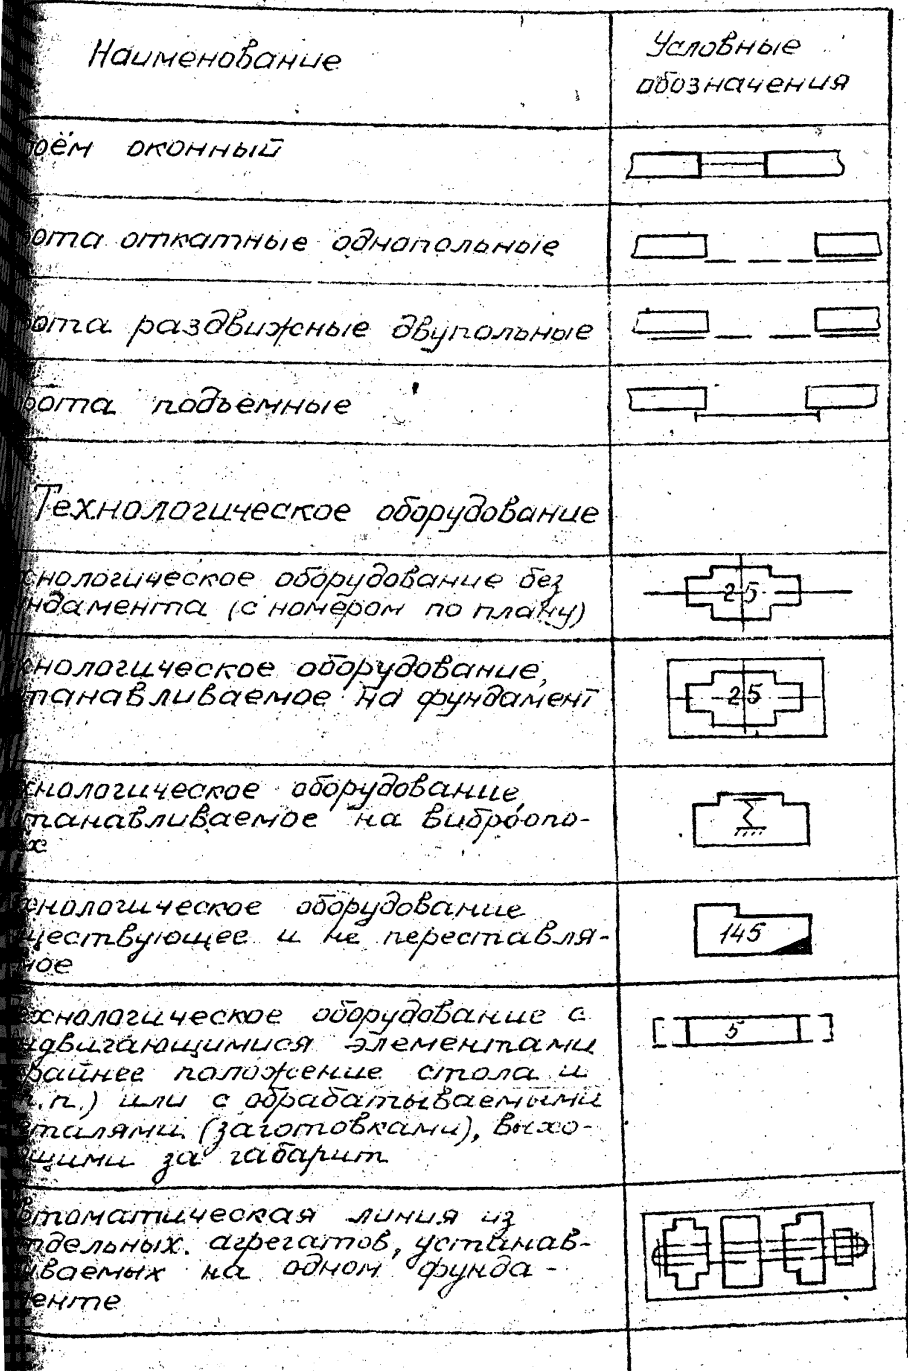 Наименование
Условные
обозначения
оём оконный
ота откатные однопольные
ота раздвижные двупольные
рота подъёмные
Технологическое оборудование
хнологическое оборудование без
ндамента (с номером по плану)
25
хнологическое оборудование,
танавливаемое на фундамент
25
хнологическое оборудование,
танавливаемое на виброопо-
ах
хнологическое оборудование
ществующее и не переставля-
мое
145
ехнологическое оборудование с
адвигающимися элементами
райнее положение стола и
.п.) или с обрабатываемыми
еталями (заготовками), выхо-
ящими за габарит
5
втоматическая линия из
тдельных агрегатов, устанав-
иваемых на одном фунда-
менте